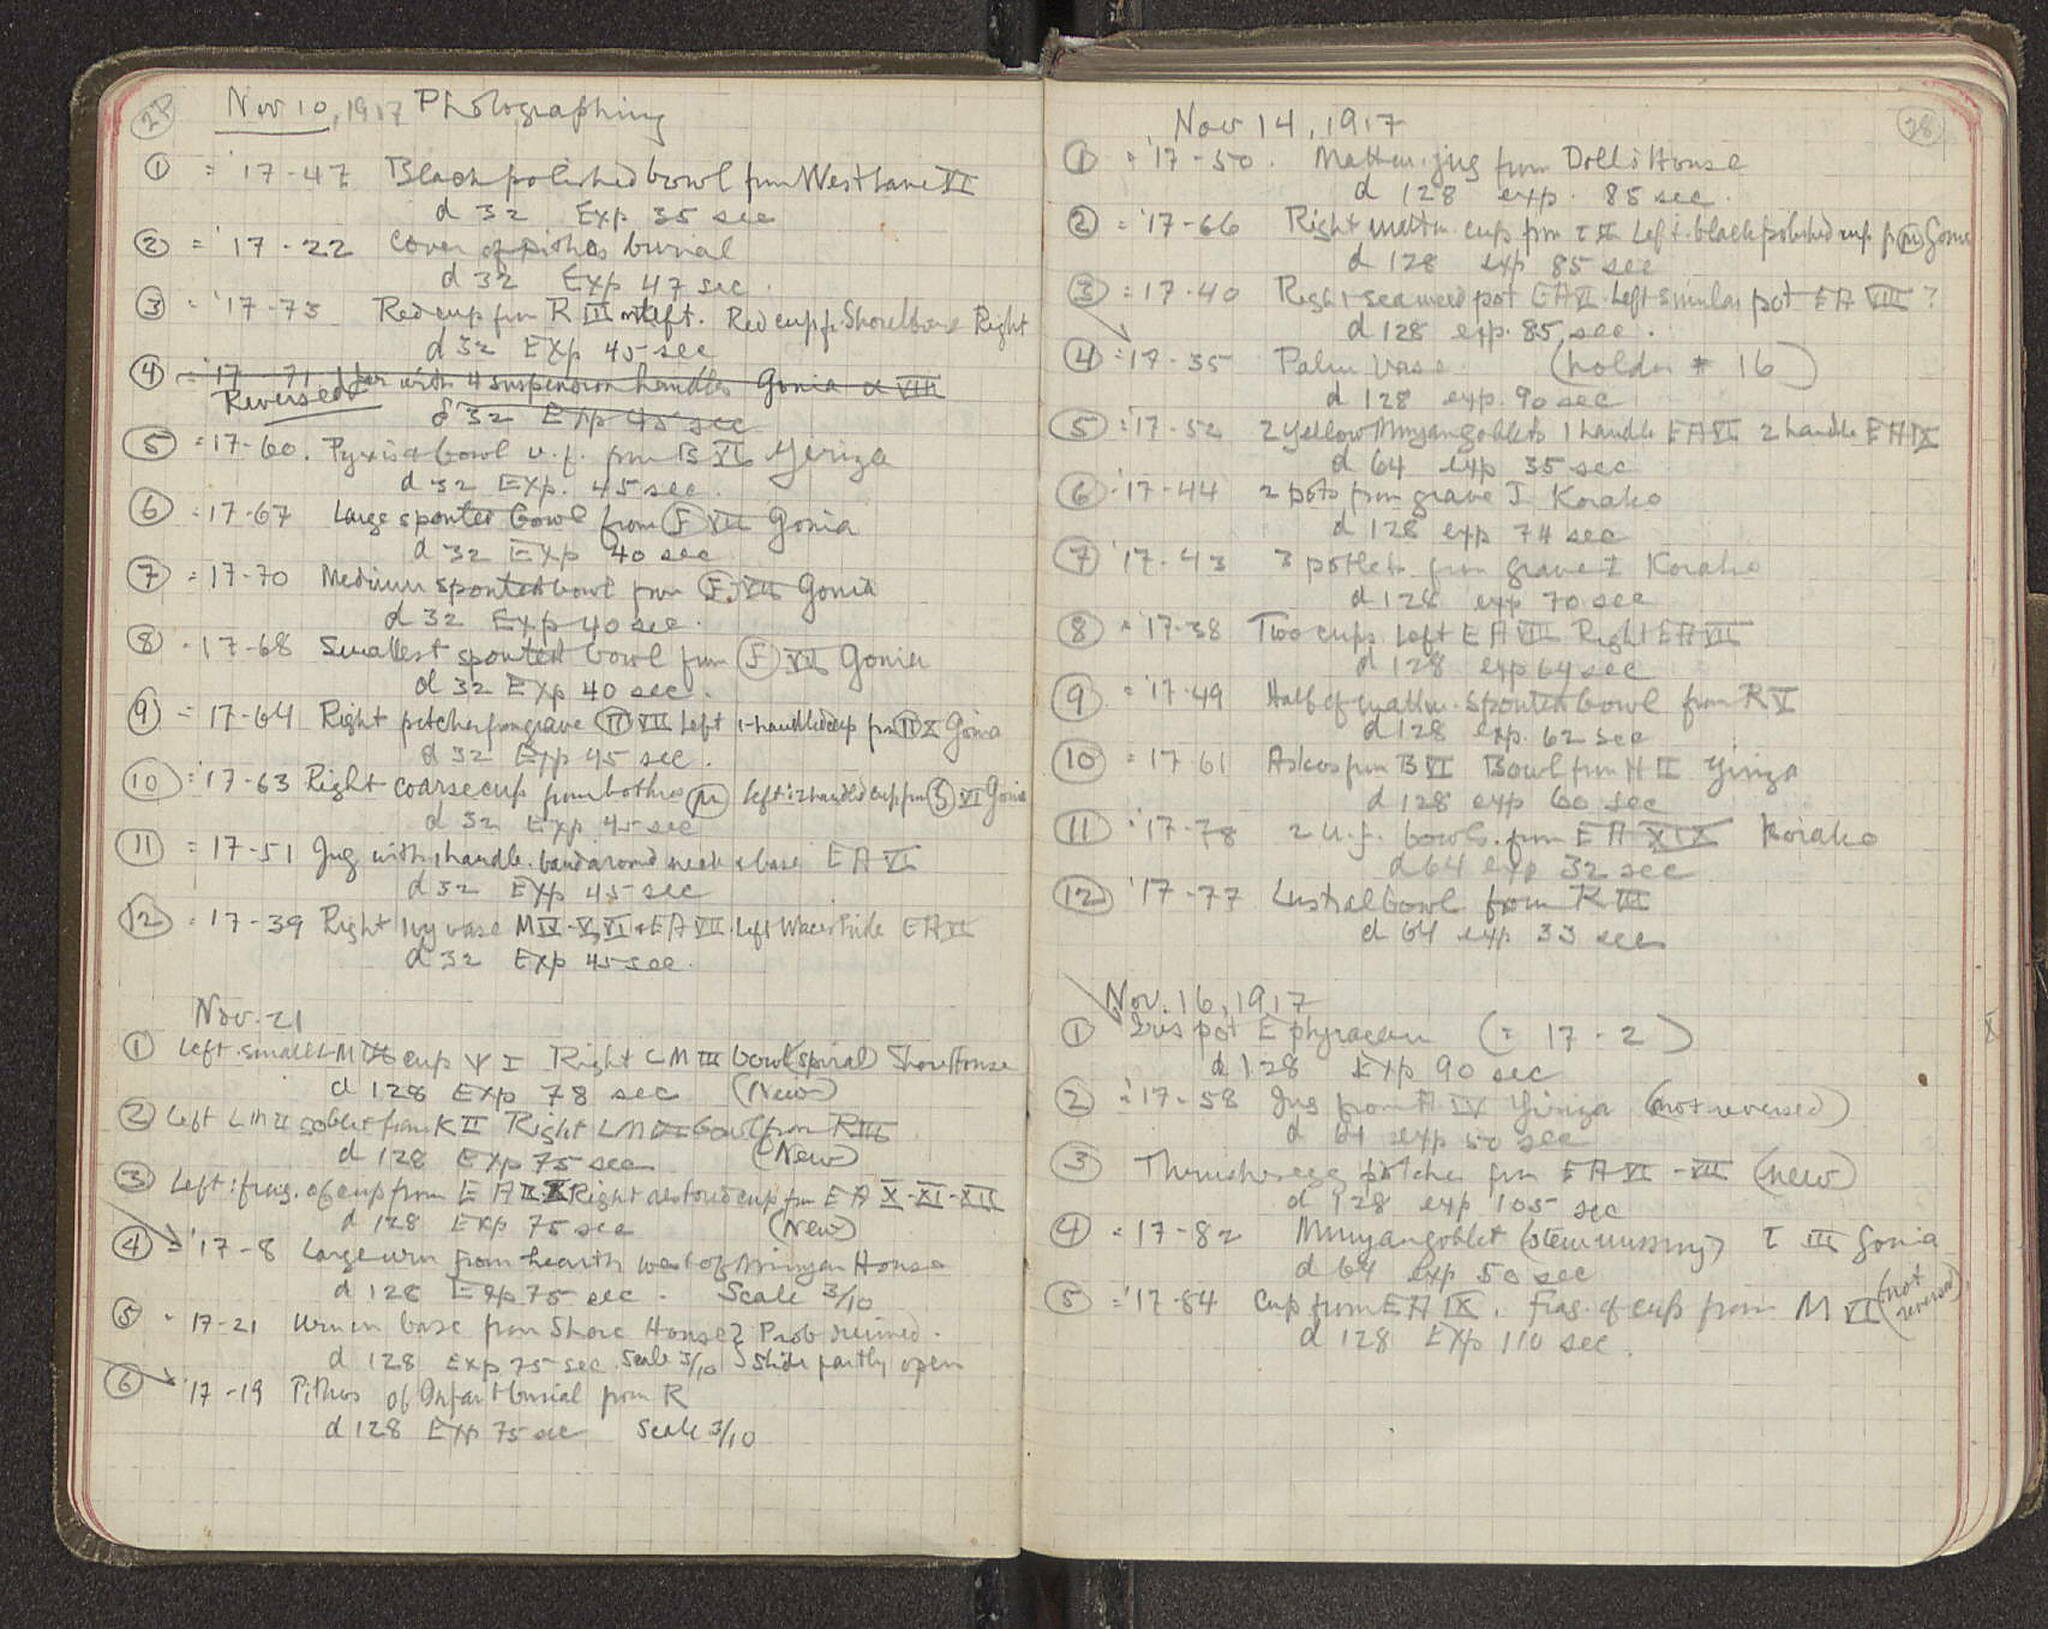 Nov 10, 1917 Photographing
① = '17-47 Black polished bowl from West Lane VI
d 32 Exp 35 sec
② = '17-22 Cover of pithos burial
d 32 Exp 47 sec.
③ = '17-73 Red cup from R III on left. Red cup f. Shore house Right
d 32 Exp 45 sec
④ = '17-71 Jar with 4 suspension handles Gonia α VIII
Reversed
d 32 Exp 45 sec
⑤ = 17-60. Pyxis & bowl u.f. from B VI Yiriza
d 32 Exp. 45 sec.
⑥ = 17-67 Large spouted bowl from F VII Gonia
d 32 Exp 40 sec
⑦ = 17-70 Medium spouted bowl from F. VII Gonia
d 32 Exp 40 sec.
⑧ = 17-68 Smallest spouted bowl from F VII Gonia
d 32 Exp 40 sec.
⑨ = 17-64 Right pitcher from grave II VII Left 1-handled cup from II X Gonia
d 32 Exp 45 sec.
⑩ = '17-63 Right coarse cup from bothros left: 2 handled cup from VI Gonia
d 32 Exp 45 sec
⑪ = 17-51 Jug with 1 handle. band around neck & base EA VI
d 32 Exp 45 sec
⑫ = 17-39 Right Ivy vase M IV-V, VI & EA VII. Left EA VI
d 32 Exp 45 sec.
Nov. 21
① Left. small LM cup Ψ I Right LM III bowl (spiral) Shore House
d 128 Exp 78 sec (New)
② Left LM II goblet from K II Right LM III bowl from R III
d 128 Exp 75 sec (New)
③ Left: frag. of cup from EA Right restored cup from EA X-XI-XII
d 128 Exp 75 sec (New)
④ = '17-8 Large urn from hearth west of Minyan House
d 128 Exp 75 sec. Scale 3/10
⑤ = 17-21 Urn on base from Shore House } Prob ruined.
d 128 Exp 75 sec. Scale 3/10 } Slide partly open
⑥ '17-19 Pithos of Infant burial from R
d 128 Exp 75 sec Scale 3/10
28
Nov 14, 1917
① = '17-50. Mattm. jug from Doll's House
d 128 exp. 85 sec.
② = '17-66 Right mattm. cup from τ II Left. black polished cup Gonia
d 128 exp 85 sec
③ = 17-40 Right seaweed pot EA VI. Left similar pot EA VIII?
d 128 exp. 85 sec.
④ = 17-35 Palm vase (holder # 16)
d 128 exp. 90 sec
⑤ = '17-52 2 Yellow Minyan goblets 1 handle EA VI 2 handle EA IX
d 64 exp 35 sec
⑥ = 17-44 2 pots from grave I Korako
d 128 exp 74 sec
⑦ '17-43 3 potlets from grave I Korako
d 128 exp 70 sec
⑧ = '17-38 Two cups Left EA VIII Right EA VII
d 128 exp 64 sec
⑨ = '17-49 Half of mattm. spouted bowl from R V
d 128 exp. 62 sec
⑩ = 17-61 Askos from B VI Bowl from H II Yiriza
d 128 exp 60 sec
⑪ = '17-78 2 u.f. bowls from EA XIX Korako
d 64 exp 32 sec
⑫ '17-77 Lustral bowl from R III
d 64 exp 33 sec
Nov. 16, 1917
① Iris pot Ephyraean (= 17-2)
d 128 Exp 90 sec
② = '17-58 Jug from A IV Yiriza (not reversed)
d 64 exp 50 sec
③ Thrush egg pitcher from EA VI-VII (new)
d 128 exp 105 sec
④ = 17-82 Minyan goblet (stem missing) τ III Gonia
d 64 exp 50 sec
⑤ = '17-84 Cup from EA IX. Frag. of cup from M VI (not reversed)
d 128 Exp 110 sec.